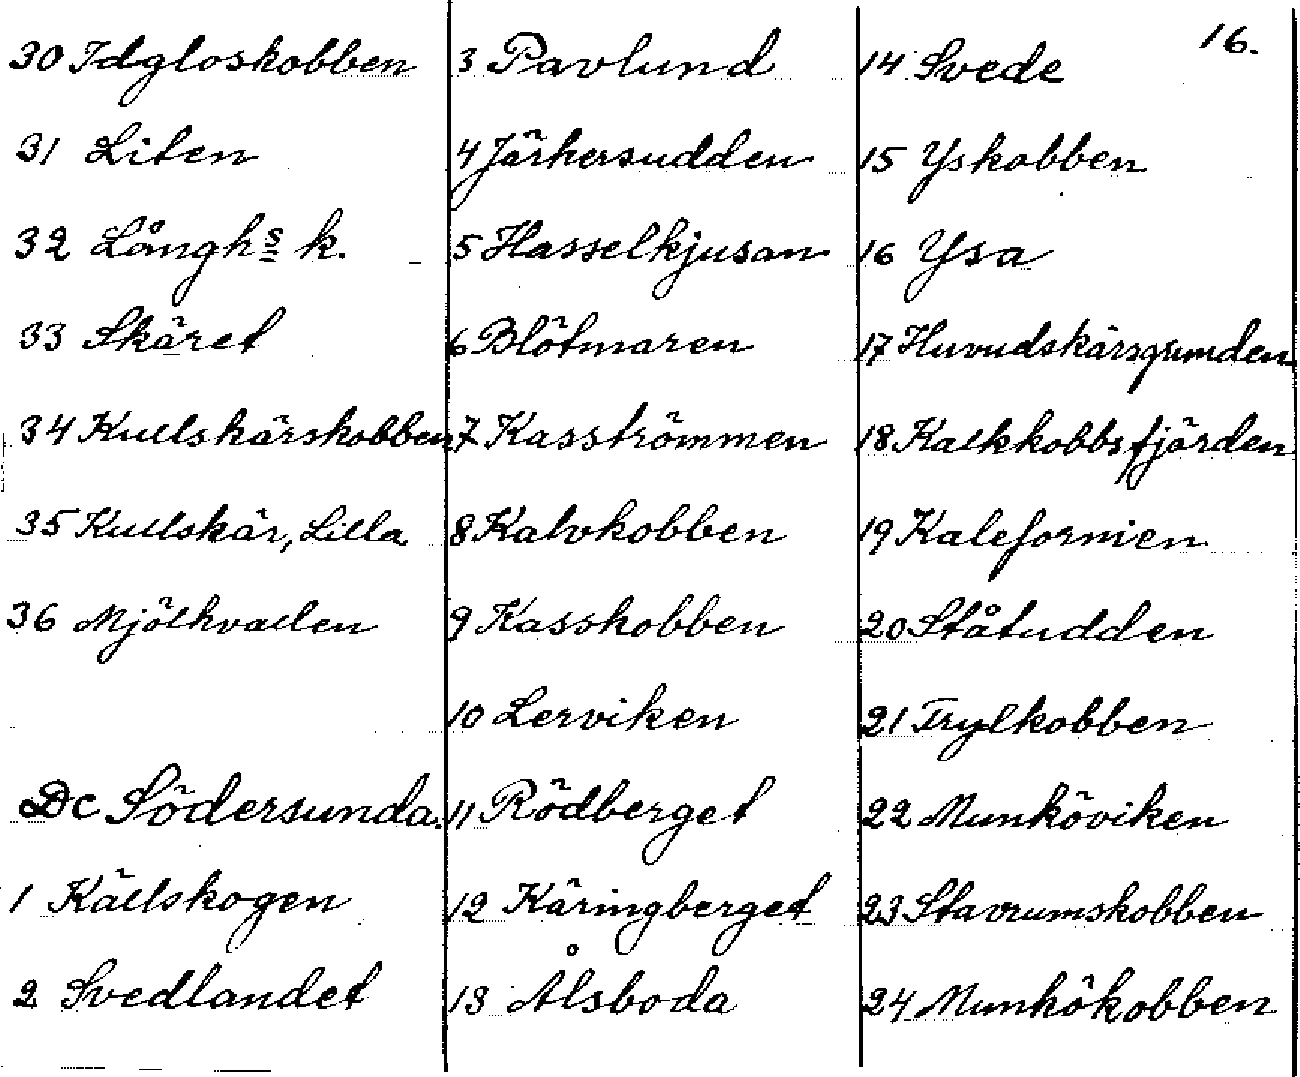 16.
30 Idgloskobben
31 Liten
32 Långhs k.
33 Skäret
34 Kullskärskobben
35 Kullskär, Lilla
36 Mjölkvallen
Dc Södersunda.
1 Källskogen
2 Svedlandet
3 Pavlund
4 Järkersudden
5 Hasselkjusan
6 Blötmaren
7 Kasströmmen
8 Kalvkobben
9 Kasskobben
10 Lerviken
11 Rödberget
12 Käringberget
13 Ålsboda
14 Svede
15 Yskobben
16 Ysa
17 Huvudskärsgrunden
18 Kalkkobbsfjärden
19 Kalefornien
20 Ståtudden
21 Trylkobben
22 Munköviken
23 Stavrumskobben
24 Munkökobben